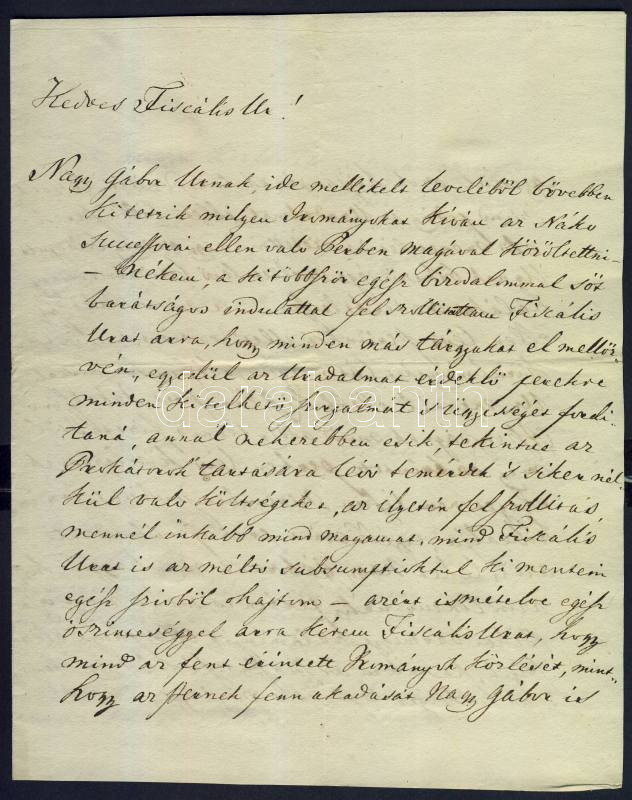 Kedves Fiscális Ur!
Nagy Gábor Urnak, ide mellékelt leveléből bővebben
kitetszik milyen Irományokat kíván az Náko
Successorai ellen való Perben magával közöltettni
– nékem, a ki többször egész bizodalommal söt
barátságos indulattal fel szollitottam Fiscális
Urat arra, hogy minden más tárgyakat el mellöz-
vén, egyedül az Uradalmat érdeklő perekre
minden kitelhető szorgalmat 's ügyességét fordi-
taná, annál neherebben esik, tekintve az
Prokátorok tartására lévő temérdek 's siker nél-
kül való költségeket, az ilyetén fel szollitás,
mennél inkább mind magamat, mind Fiskális
Urat is az méltó subsumptioktul ki menteni
egész szivből ohajtom – azért ismételve egész
öszinteséggel arra kérem Fiscális Urat, hogy
mind az fent érintett Irományok közlését, mint-
hogy az pernek fenn akadását Nagy Gábor is
darabanth